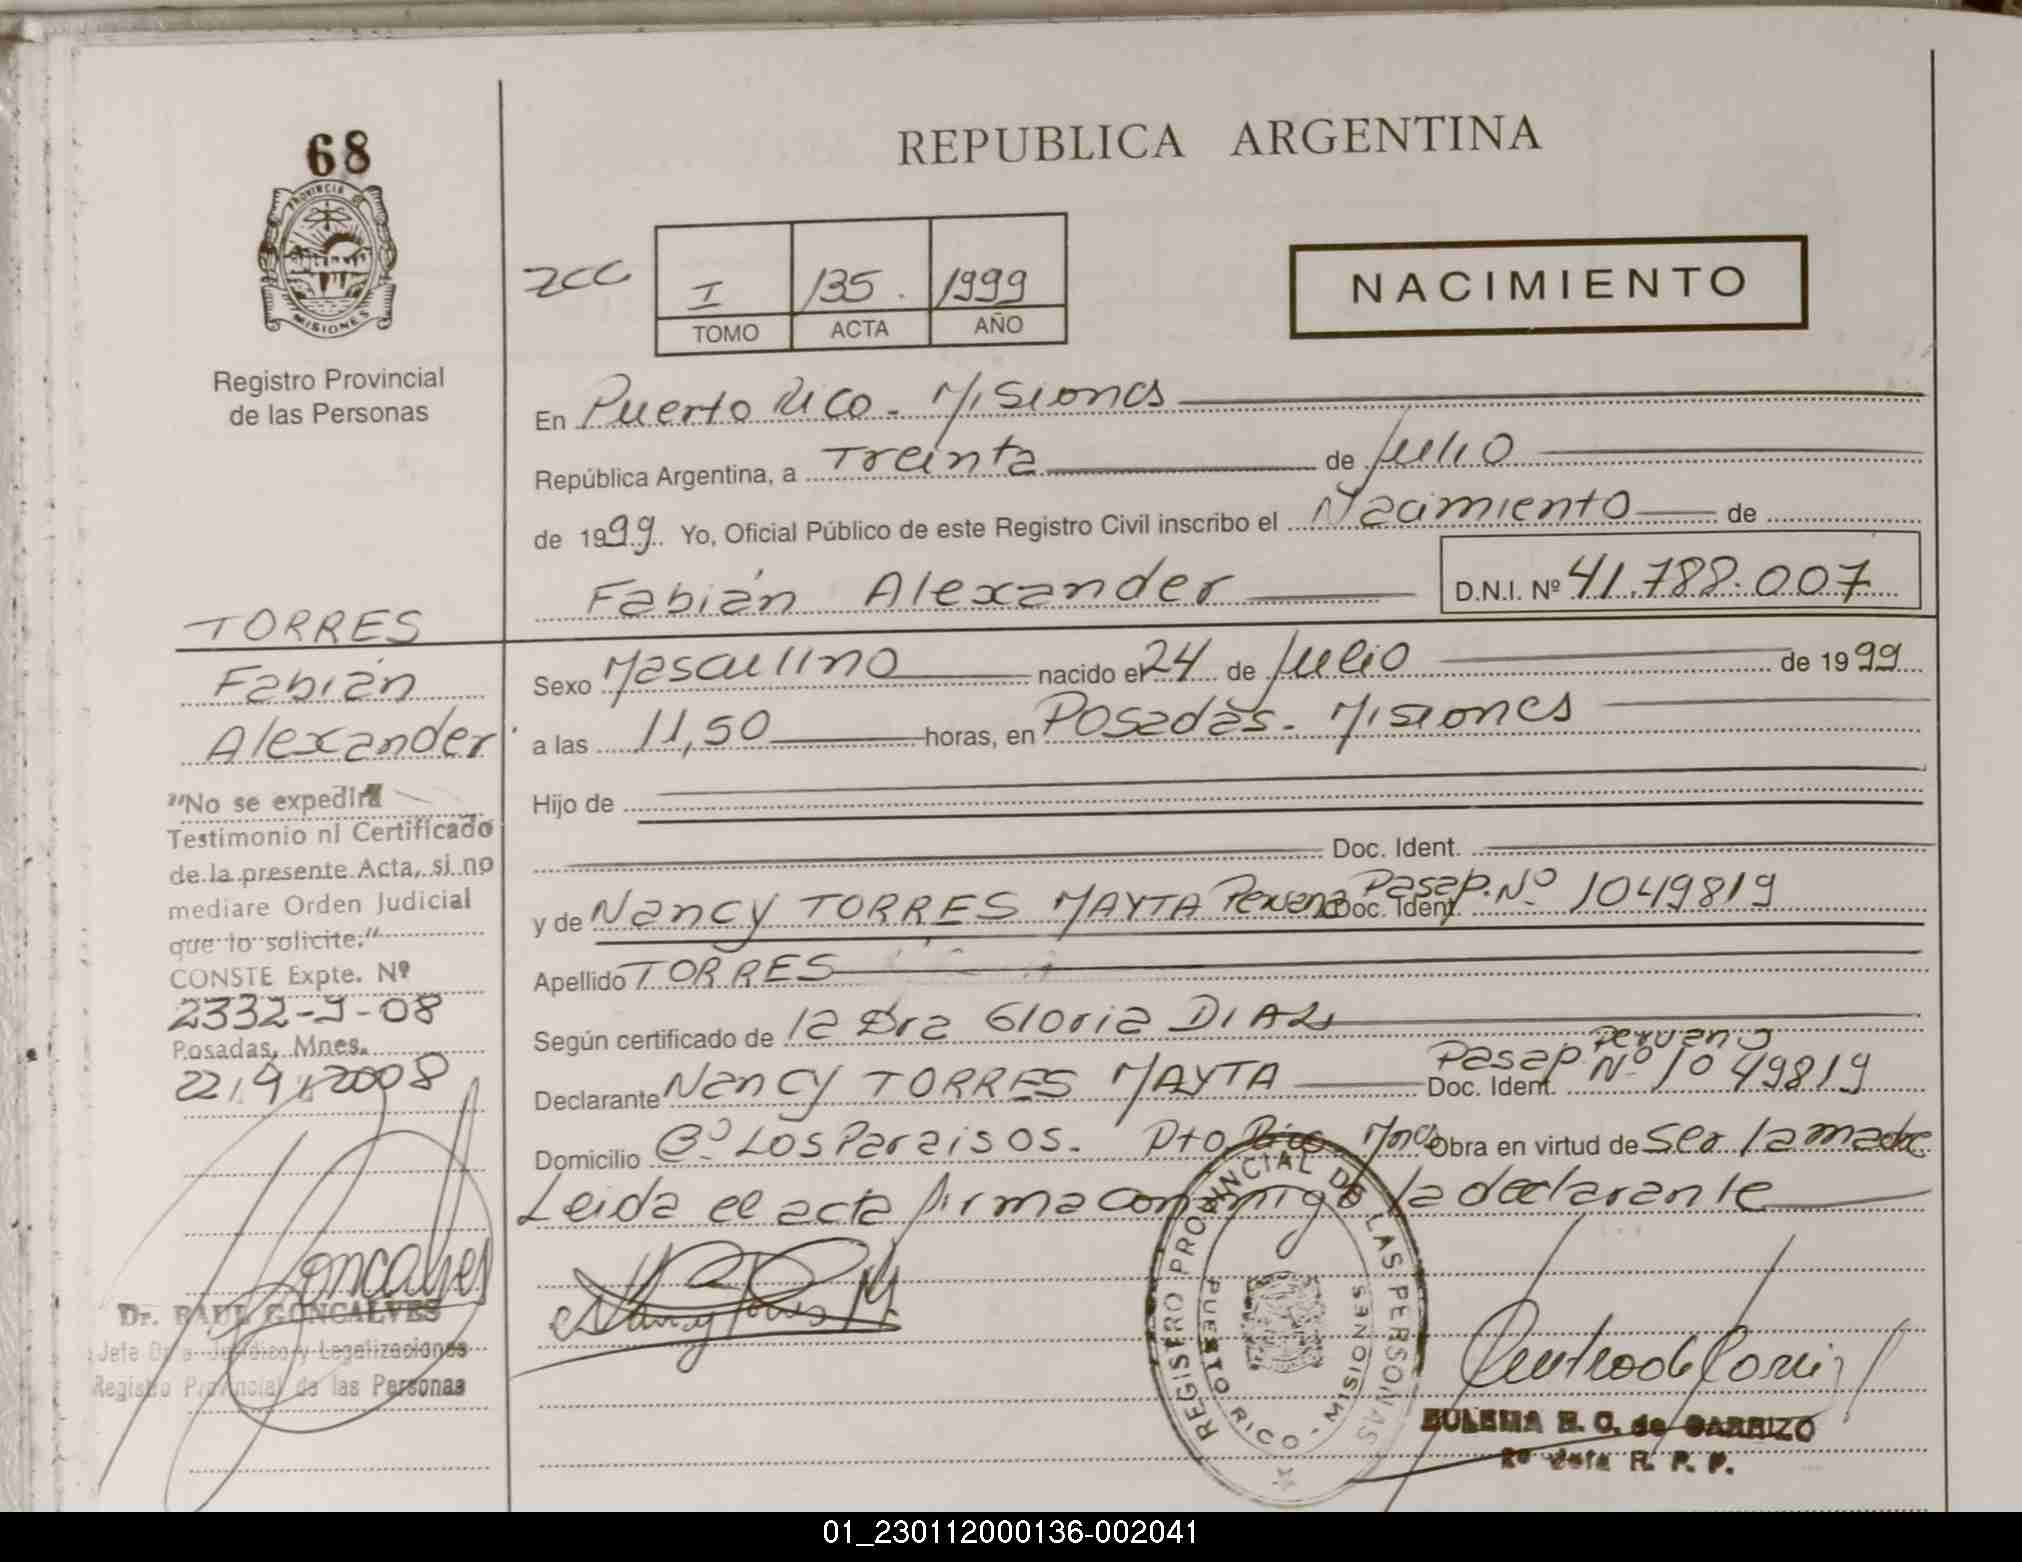 68
PROVINCIA DE
MISIONES
Registro Provincial
de las Personas
REPUBLICA ARGENTINA
I 135. 1999
TOMO ACTA AÑO
NACIMIENTO
En Puerto Rico - Misiones
República Argentina, a Treinta de Julio
de 1999. Yo, Oficial Público de este Registro Civil inscribo el Nacimiento de
Fabián Alexander D.N.I. Nº 41.788.007
Sexo Masculino nacido el 24 de Julio de 1999
a las 11,50 horas, en Posadas - Misiones
Hijo de
Doc. Ident.
y de Nancy TORRES MAYTA Peruana Doc. Ident. Pasap. Nº 1049819
Apellido TORRES
Según certificado de la Dra Gloria DIAZ
Peruano
Declarante Nancy TORRES MAYTA Doc. Ident. Pasap Nº 1049819
Domicilio Bº Los Paraisos. Pto Rico Mnes Obra en virtud de ser la madre
Leida el acta firma conmigo la declarante
TORRES
Fabián
Alexander
"No se expedirá
Testimonio ni Certificado
de la presente Acta, si no
mediare Orden Judicial
que lo solicite."
CONSTE Expte. Nº
2332-J-08
Posadas, Mnes.
22/9/2008
Goncalves
Dr. RAUL GONCALVES
Jefe Dpto Jurídico y Legalizaciones
Registro Provincial de las Personas
Nancy Torres M.
REGISTRO PROVINCIAL DE LAS PERSONAS
PUERTO RICO - MISIONES
E. C. de CARRIZO
2º Jefa R. P. P.
01_230112000136-002041